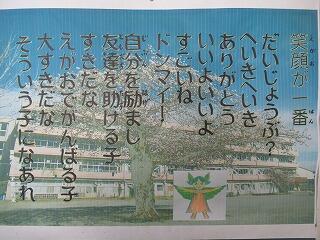 笑顔が一番
だいじょうぶ？
へいきへいき
ありがとう
いいよいいよ
すごいね
ドンマイ
自分を励まし
友達を助ける子
すきだな
えがおでがんばる子
大すきだな
そういう子になあれ